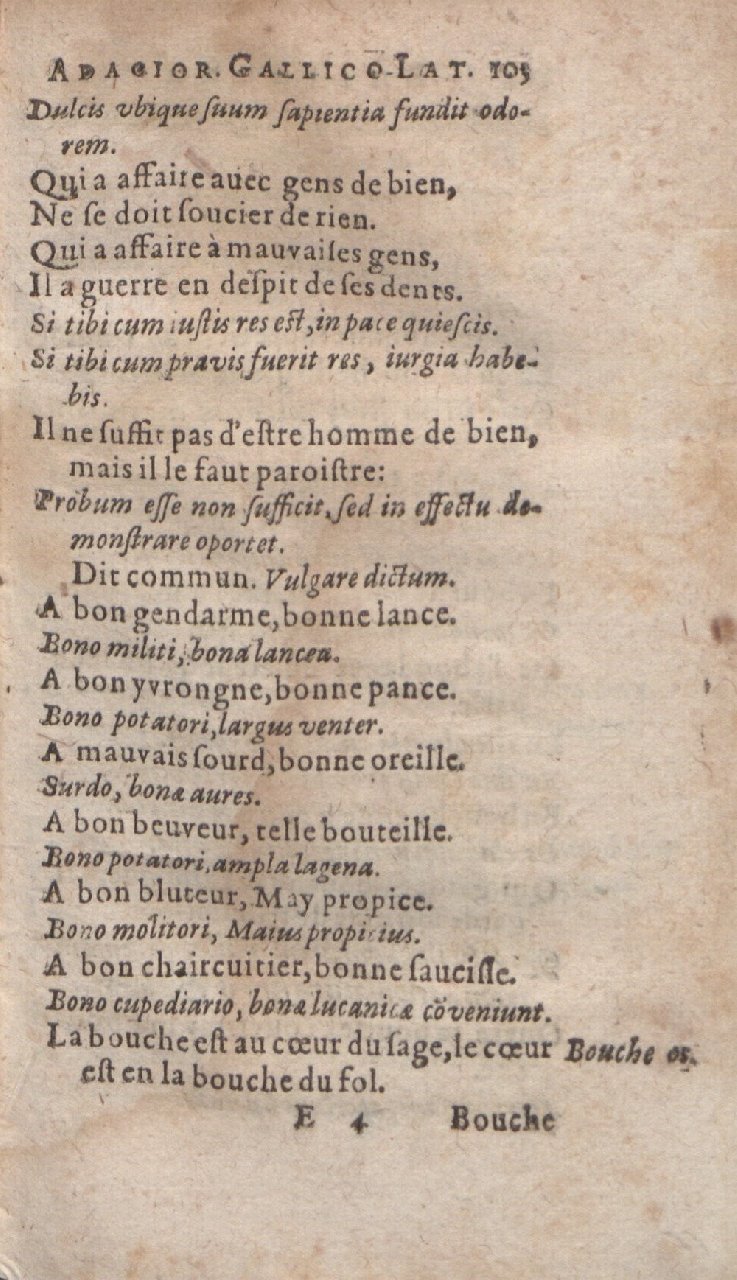 ADAGIOR. GALLICO-LAT. 105
Dulcis vbique ſuum ſapientia fundit odo-
rem.
Qui a affaire auec gens de bien,
Ne ſe doit ſoucier de rien.
Qui a affaire à mauvaiſes gens,
Il a guerre en deſpit de ſes dents.
Si tibi cum iuſtis res eſt, in pace quieſcis.
Si tibi cum pravis fuerit res, iurgia habe-
bis.
Il ne ſuffit pas d'eſtre homme de bien,
mais il le faut paroiſtre:
Probum eſſe non ſufficit, ſed in effectu de-
monſtrare oportet.
Dit commun. Vulgare dictum.
A bon gendarme, bonne lance.
Bono militi, bona lancea.
A bon yvrongne, bonne pance.
Bono potatori, largus venter.
A mauvais ſourd, bonne oreille.
Surdo, bonæ aures.
A bon beuveur, telle bouteille.
Bono potatori, ampla lagena.
A bon bluteur, May propice.
Bono molitori, Maius propicius.
A bon chaircuitier, bonne ſauciſſe.
Bono cupediario, bonæ lucanicæ cōveniunt.
La bouche eſt au cœur du ſage, le cœur Bouche os.
eſt en la bouche du fol.
E 4 Bouche